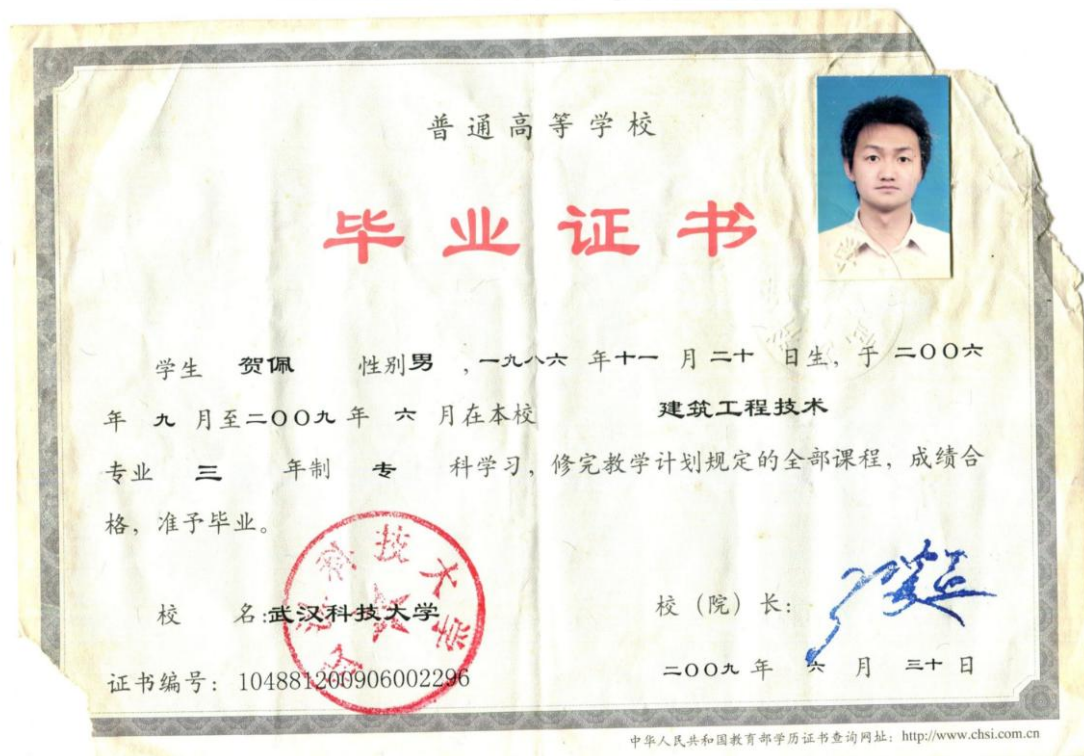 普通高等学校
毕业证书
学生 贺佩 性别男，一九八六 年十一 月 二十 日生，于 二〇〇六
年 九 月至二〇〇九 年 六 月在本校 建筑工程技术
专业 三 年制 专 科学习，修完教学计划规定的全部课程，成绩合
格，准予毕业。
武汉科技大学
校 名:武汉科技大学 校（院）长：
证书编号：104881200906002296 二〇〇九 年 六 月 三十 日
中华人民共和国教育部学历证书查询网址：http://www.chsi.com.cn